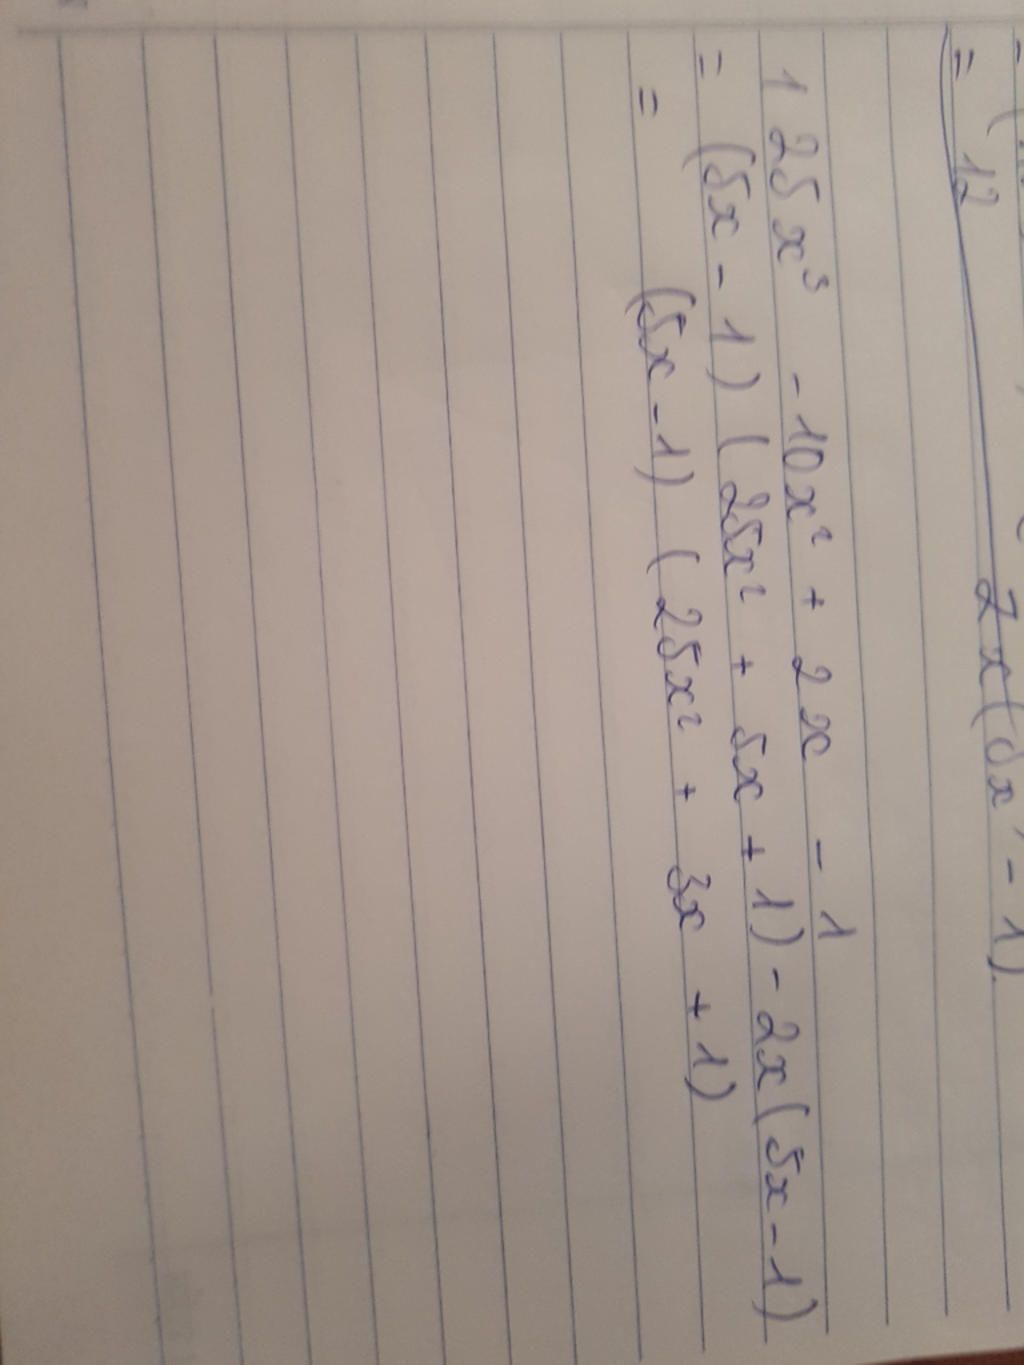 = 12 7x(5x - 1)
125x³ - 10x² + 2x - 1
= (5x - 1) (25x² + 5x + 1) - 2x(5x - 1)
= (5x - 1) (25x² + 3x + 1)